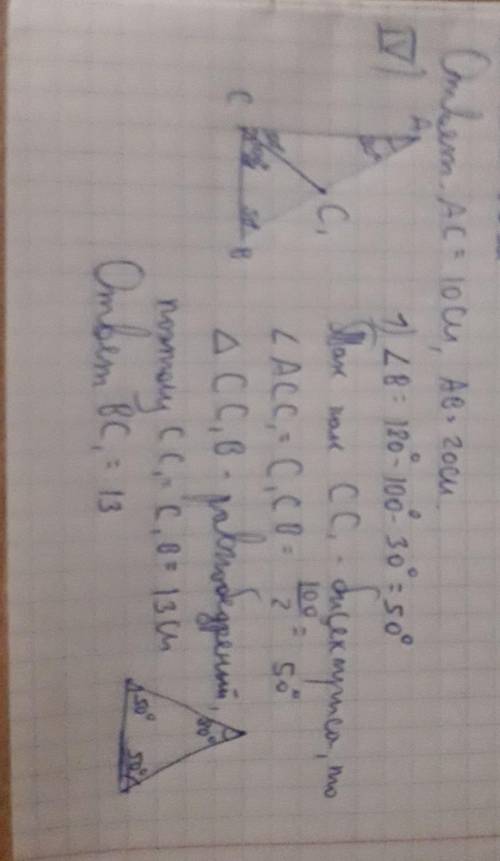 Ответ. AC = 10см, AB = 20см.
IV)
A
30°
C
C₁
B
1) ∠B = 180° - 100° - 30° = 50°
Так как CC₁ - бисектриса, то
∠ACC₁ = C₁CB = 100/2 = 50°
△CC₁B - равнобедренный,
поэтому CC₁ = C₁B = 13см
Ответ BC₁ = 13
50°
50°